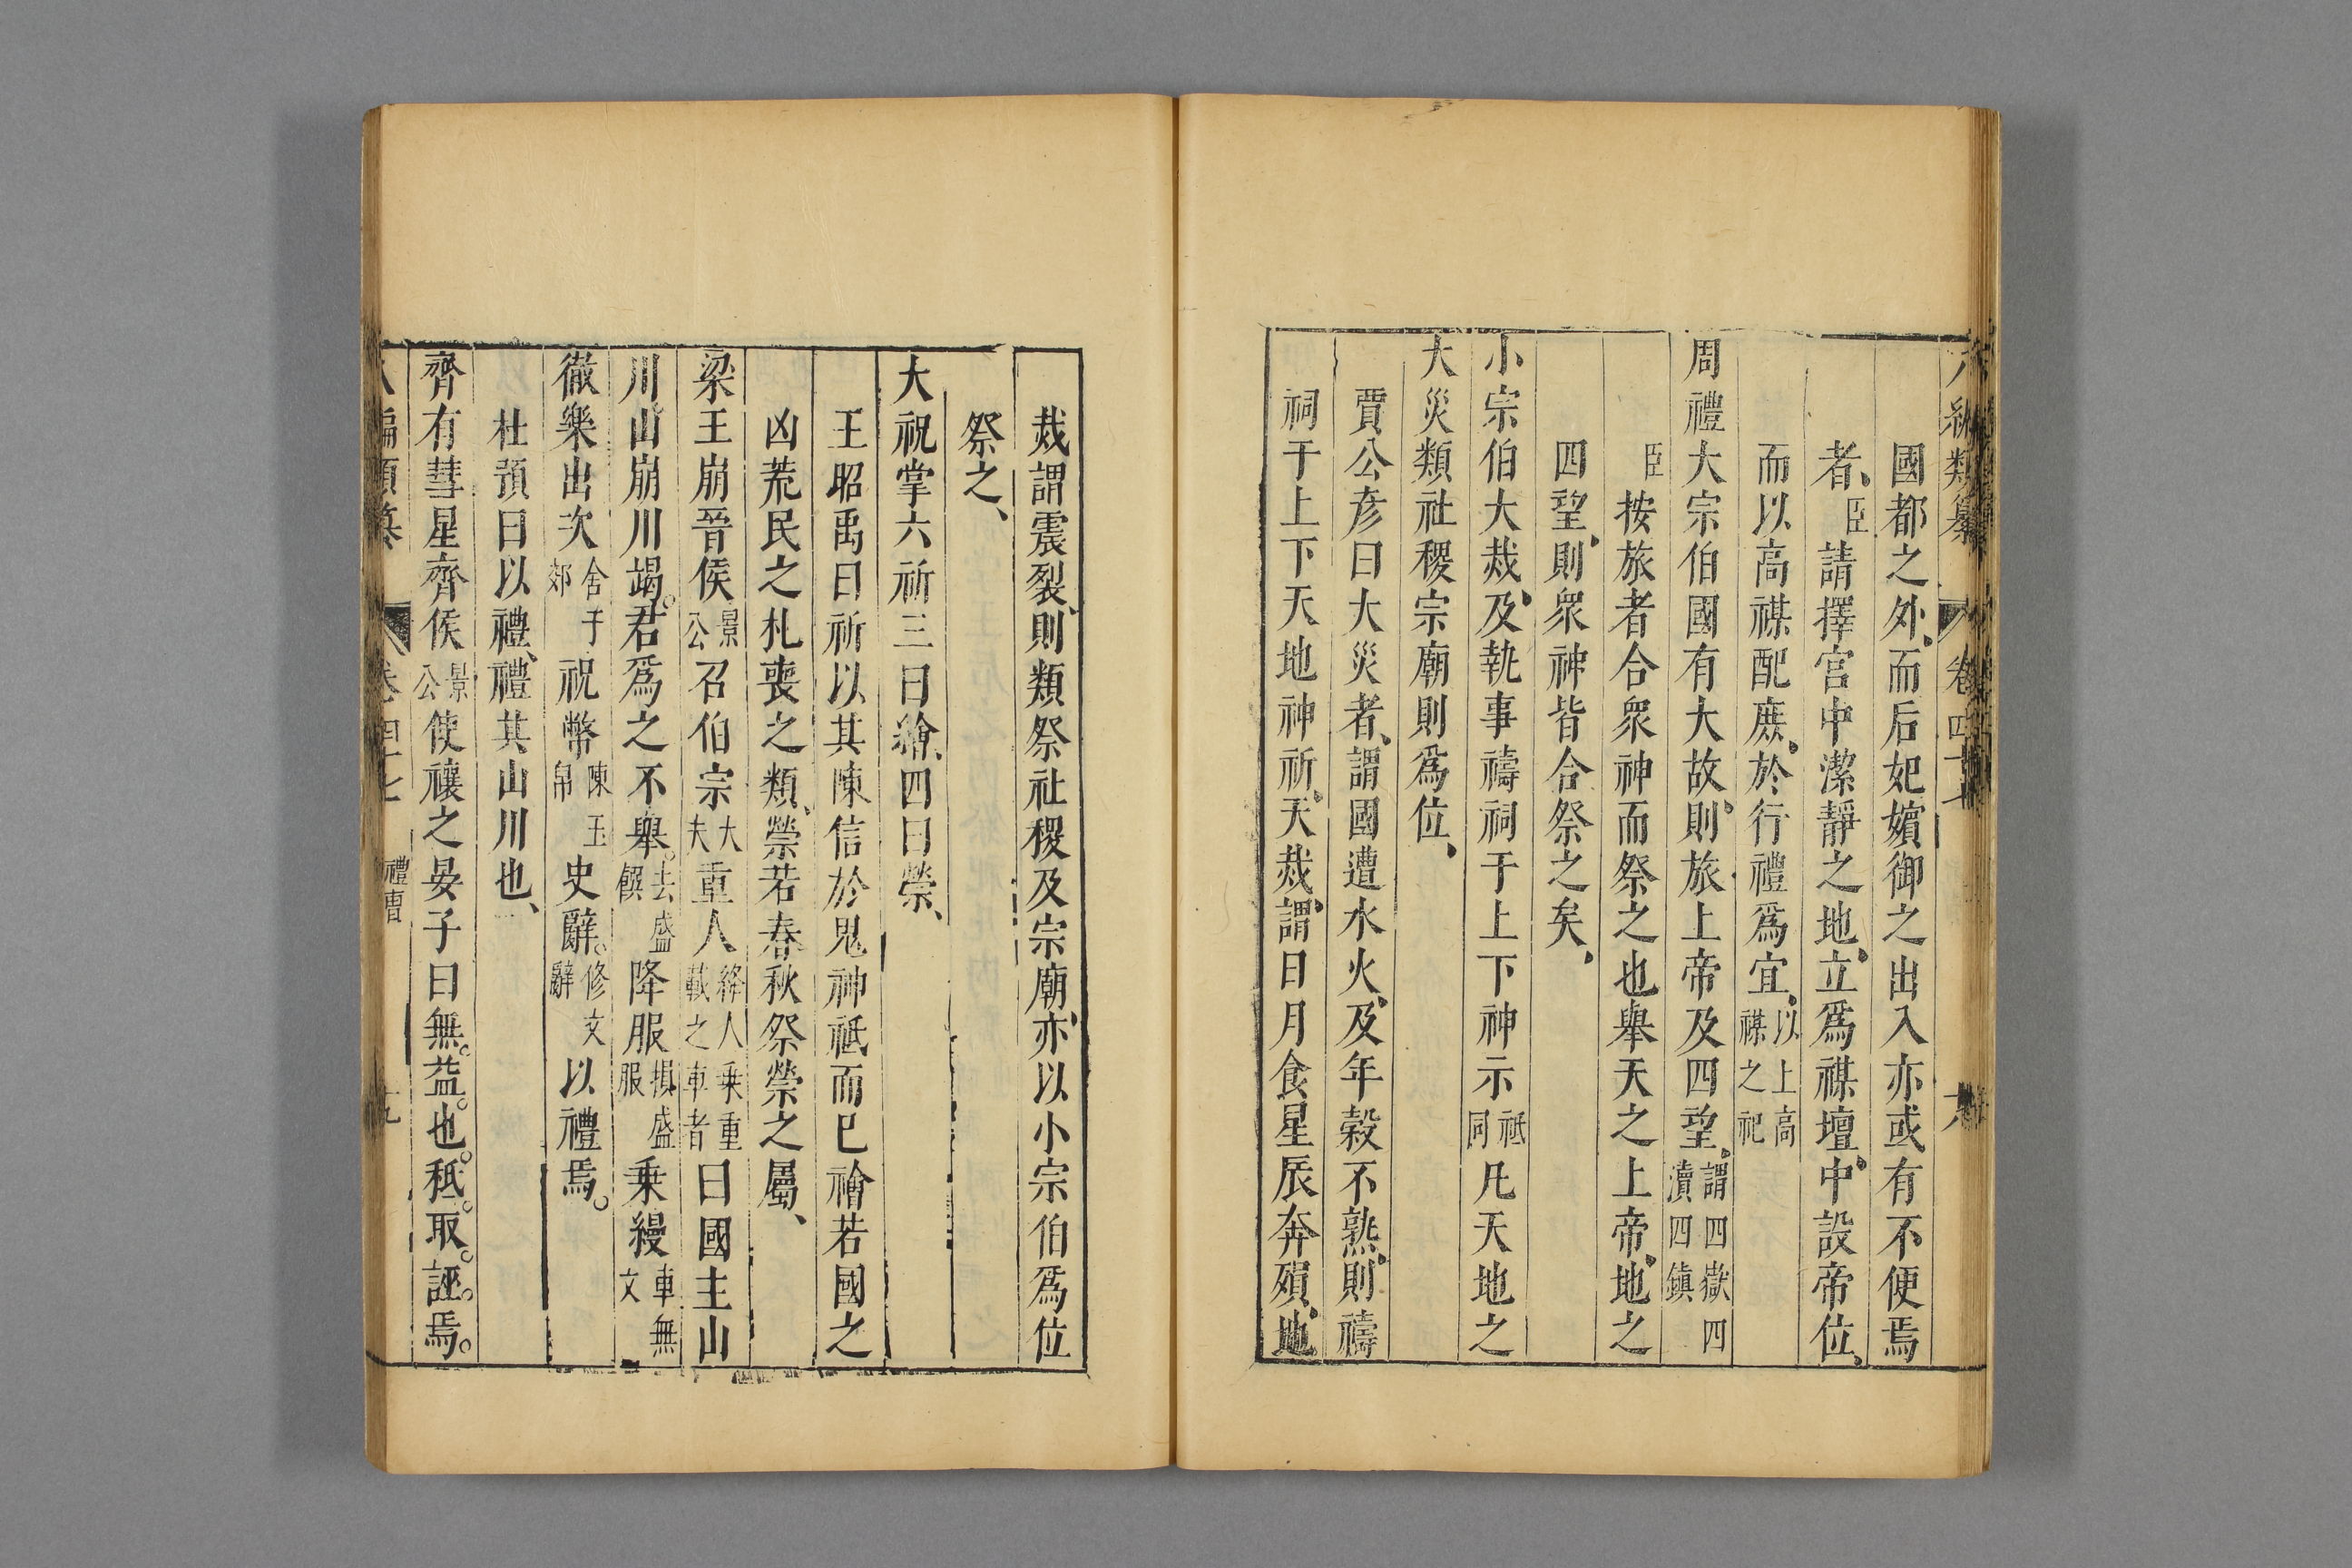 八編類纂 卷四十七 六
國都之外、而后妃嬪御之出入亦或有不便焉
者、臣請擇宮中潔靜之地、立爲禖壇、中設帝位、
而以高禖配庶、於行禮爲宜、以上高禖之祀
周禮大宗伯國有大故、則旅上帝及四望、謂四嶽四瀆四鎮
臣按旅者合衆神而祭之也舉天之上帝、地之
四望、則衆神皆合祭之矣、
小宗伯大烖、及執事禱祠于上下神示祗同凡天地之
大災類社稷宗廟則爲位、
賈公彦曰大災者、謂國遭水火、及年穀不熟、則禱
祠于上下天地神祈、天烖、謂日月食星辰奔殞、地
烖謂震裂、則類祭社稷及宗廟、亦以小宗伯爲位
祭之、
大祝掌六祈三曰繪、四曰禜、
王昭禹曰祈以其陳信於鬼神祗而已禬若國之
凶荒民之札喪之類、禜若春秋祭禜之屬、
梁王崩晉侯景公召伯宗大夫重人絳人乗重載之車者曰國主山
川、山崩川竭。君爲之不舉。去盛饌降服損盛服乗縵車無文
徹樂出次舍于郊祝幣陳玉帛史辭。修文辭以禮焉。
杜預曰以禮、禮其山川也、
齊有彗星齊侯景公使禳之晏子曰無。益。也。秪。取。誣。焉。
八編類纂 卷四十七 禮曹 十九